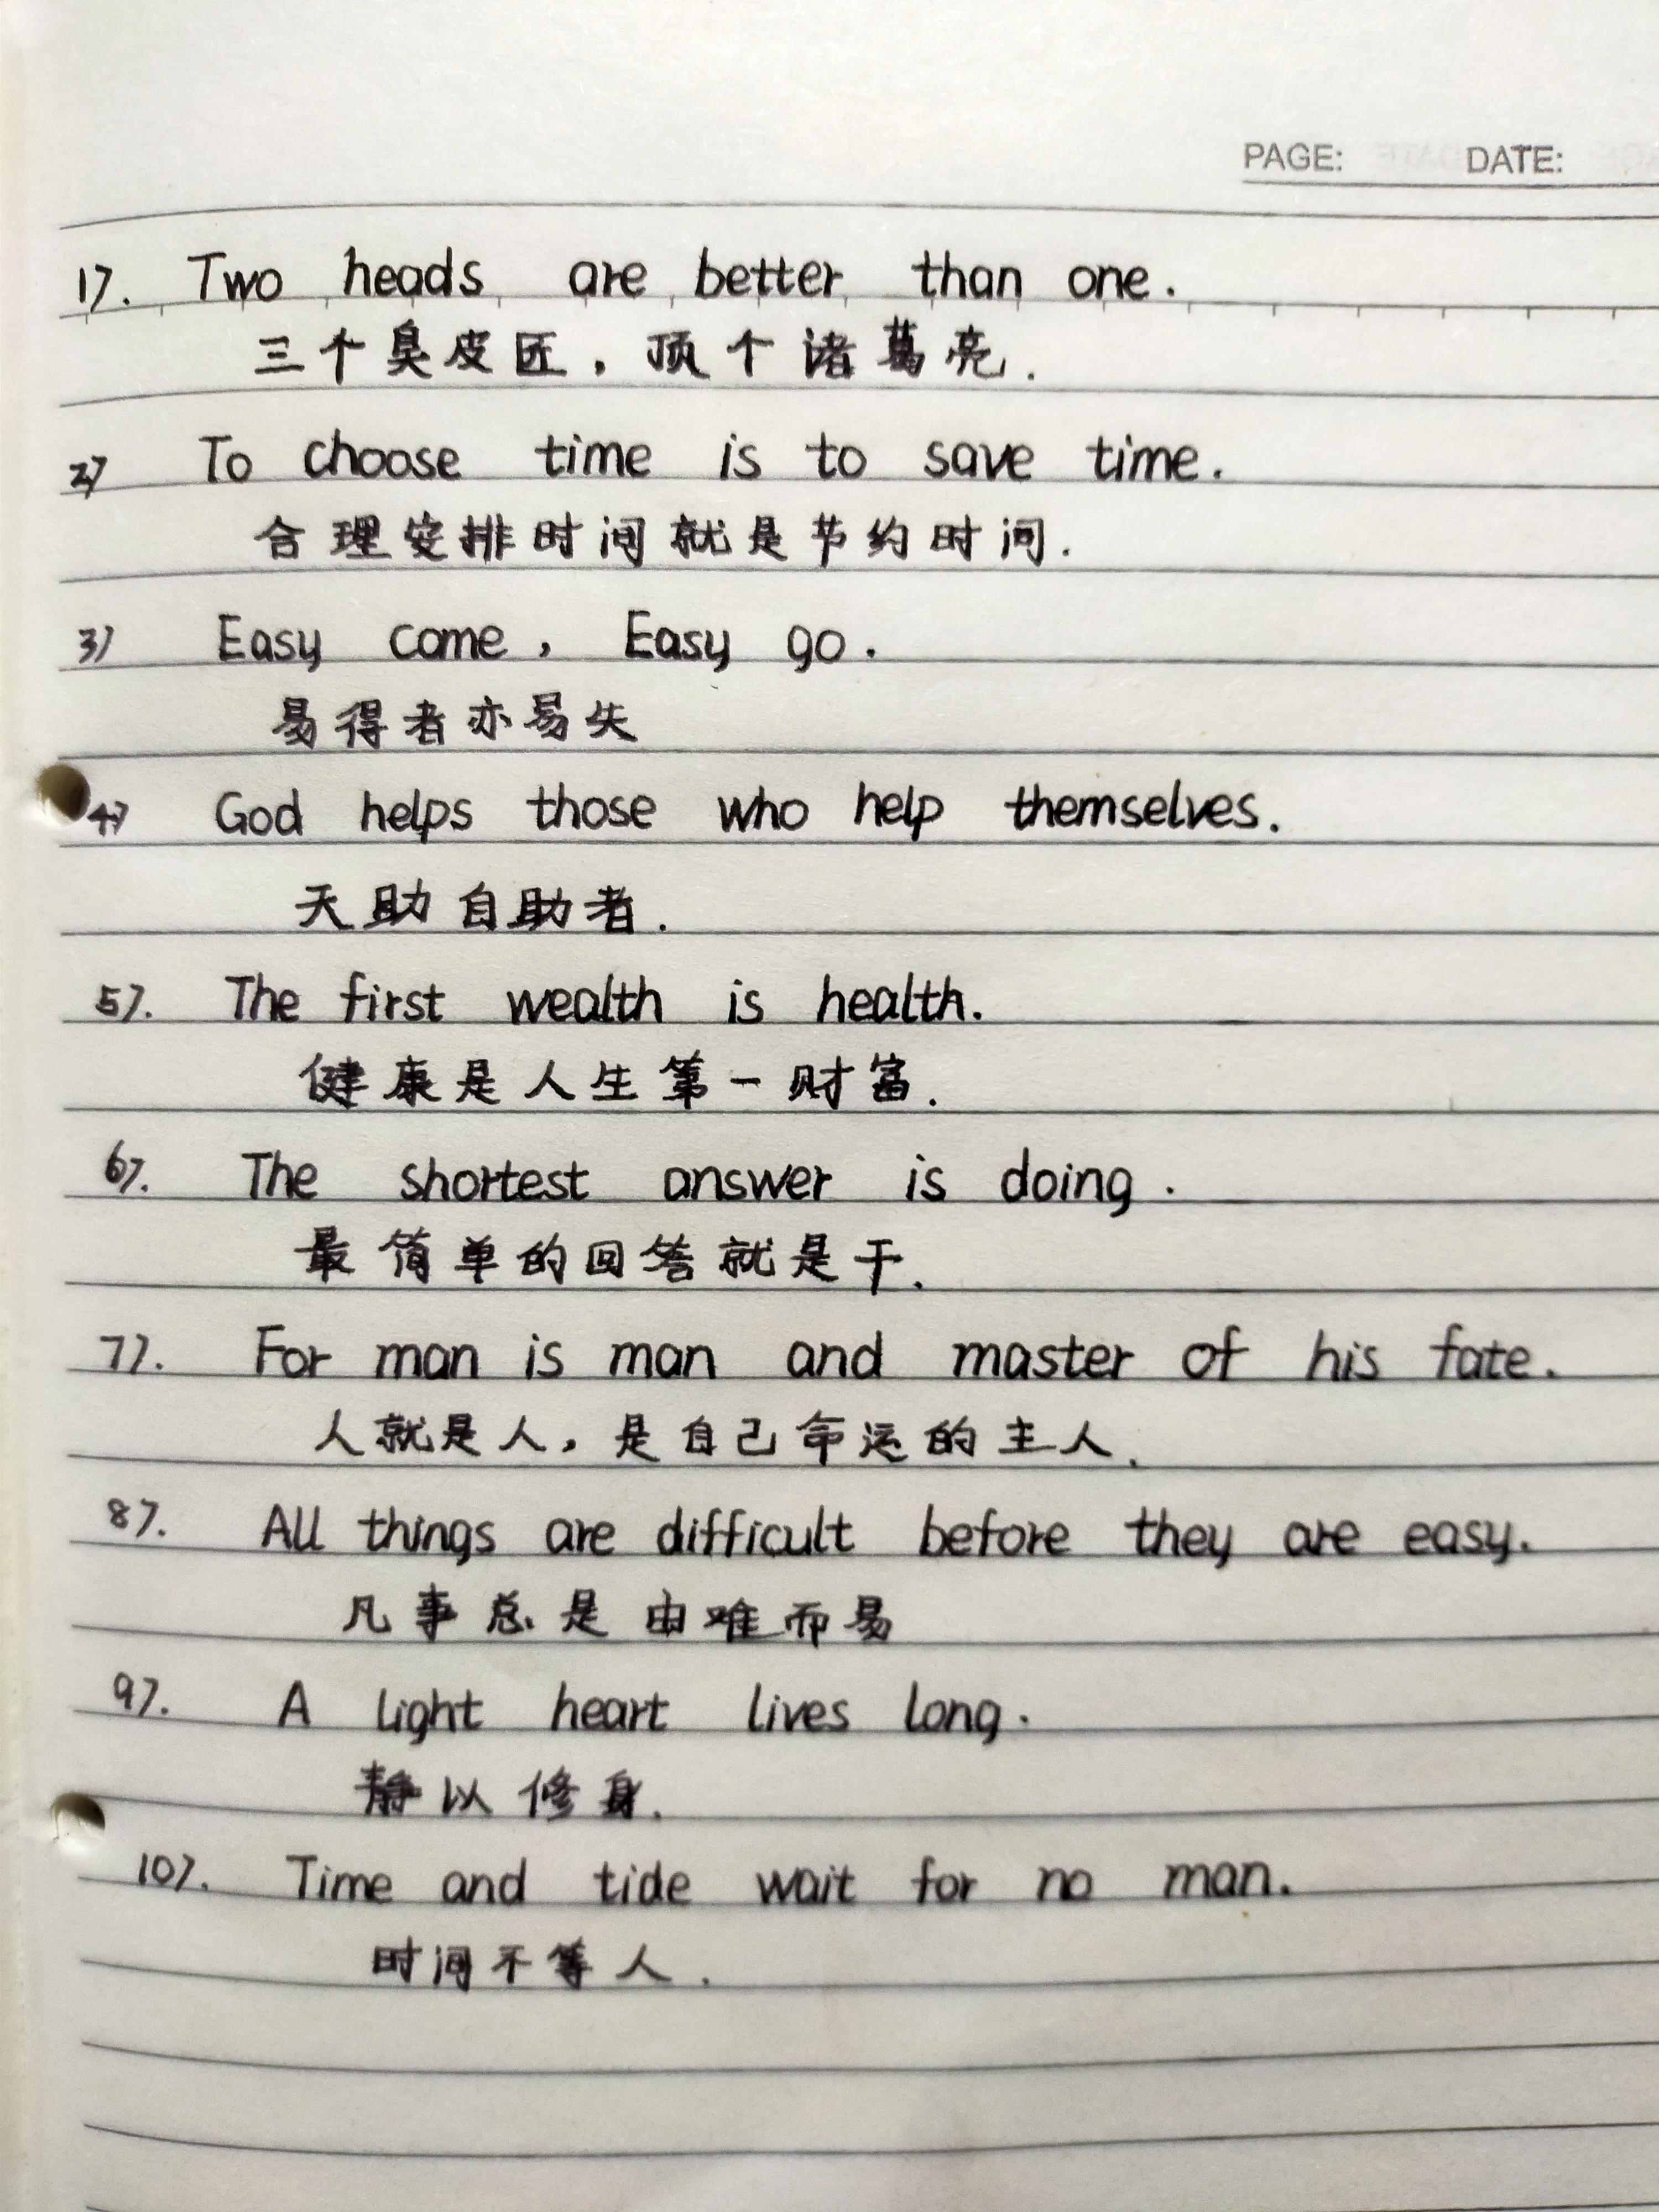 PAGE: DATE:
1). Two heads are better than one.
三个臭皮匠，顶个诸葛亮.
2) To choose time is to save time.
合理安排时间就是节约时间.
3) Easy come, Easy go.
易得者亦易失
4) God helps those who help themselves.
天助自助者.
5). The first wealth is health.
健康是人生第一财富.
6). The shortest answer is doing.
最简单的回答就是干.
7). For man is man and master of his fate.
人就是人，是自己命运的主人.
8). All things are difficult before they are easy.
凡事总是由难而易
9). A light heart lives long.
静以修身.
10). Time and tide wait for no man.
时间不等人.